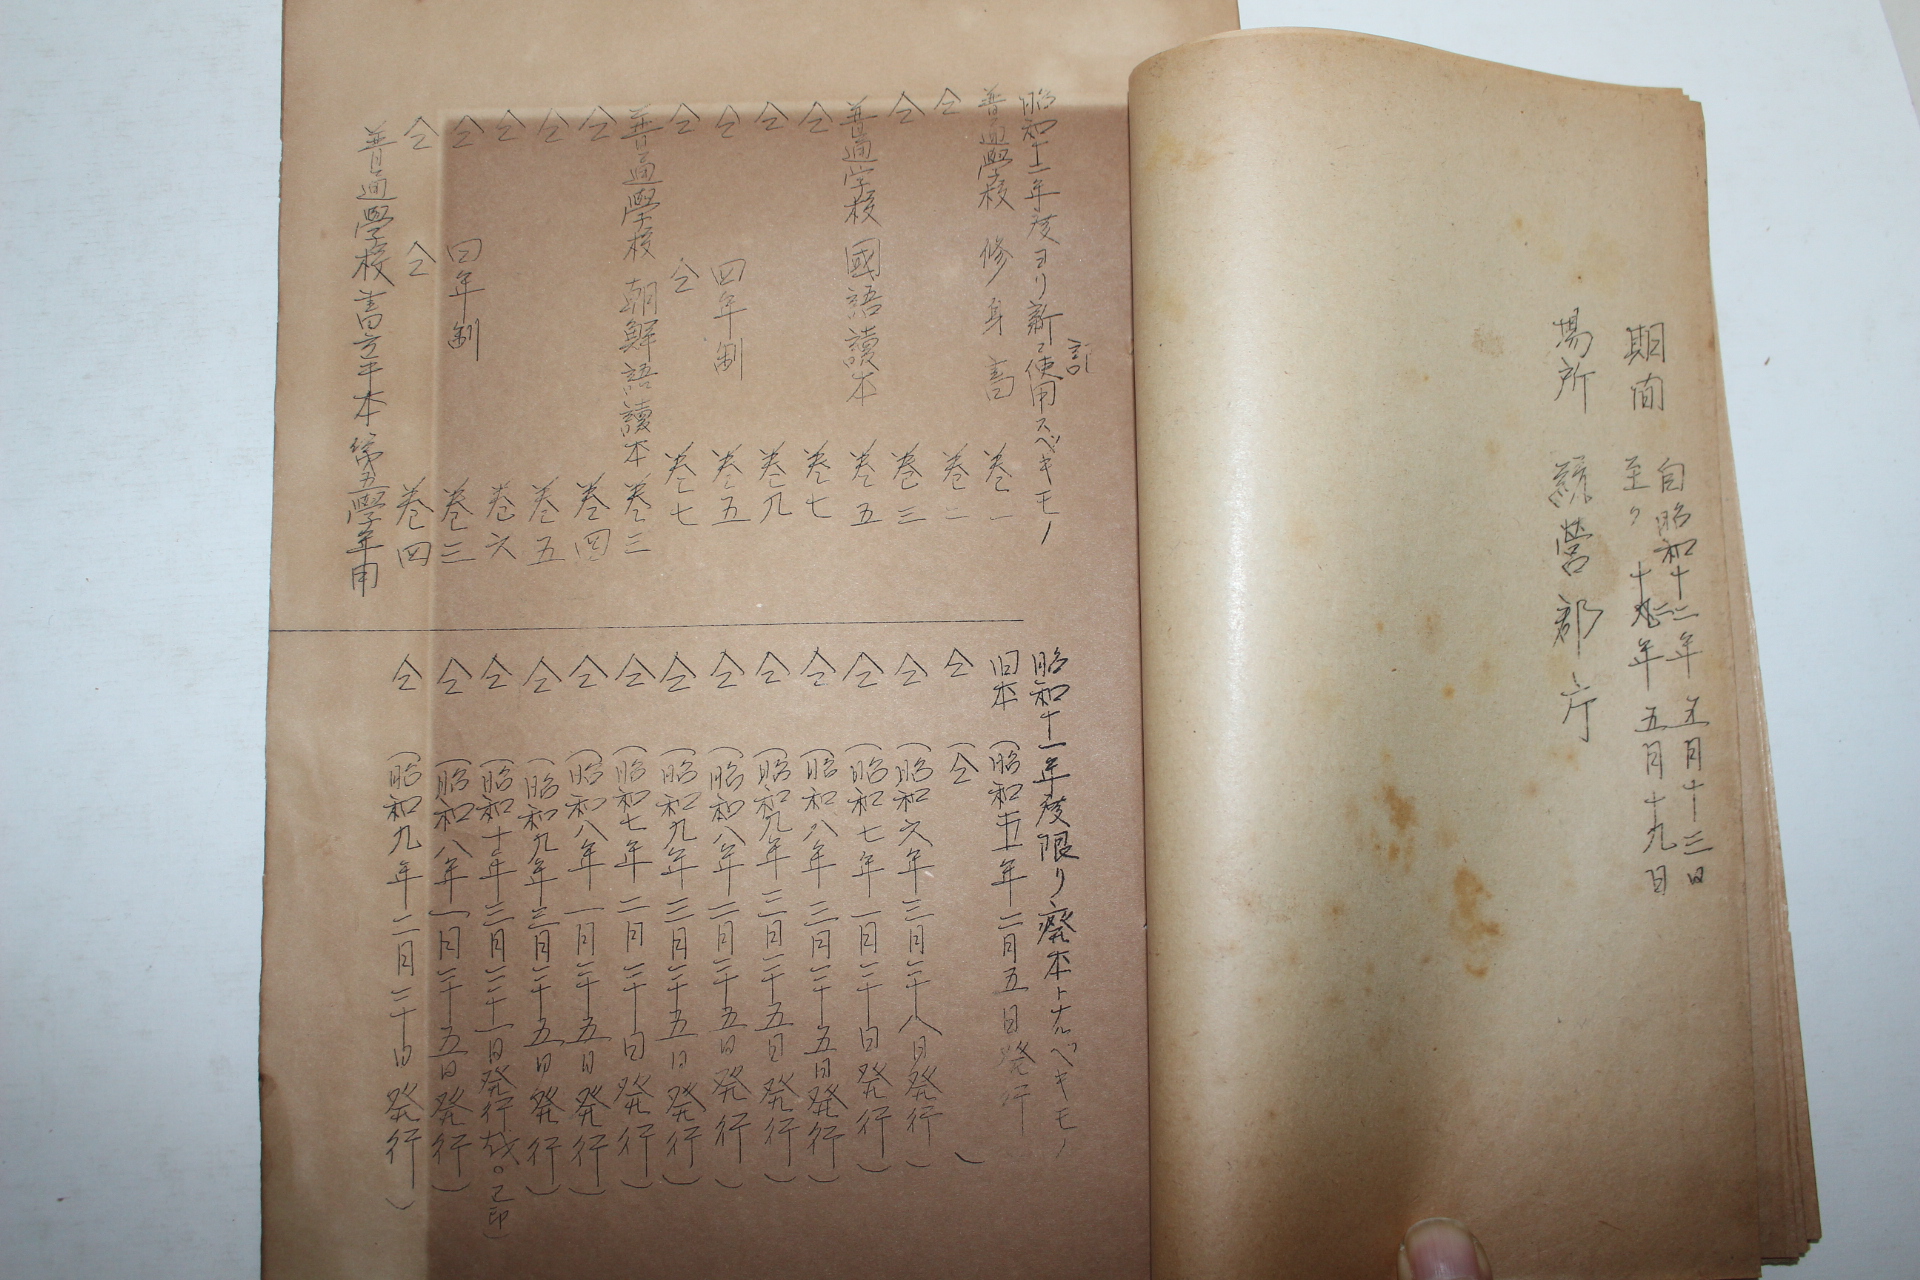 期間 自昭和十二年五月十三日
至〃十二年五月十九日
場所 蘇營郡庁
計
昭和十一年度ヨリ新ニ使用スベキモノ
普通學校修身書 卷一
仝 卷二
仝 卷三
普通学校國語讀本 卷五
仝 卷七
仝 卷九
仝 四年制 卷五
仝 仝 卷七
普通學校朝鮮語讀本 卷三
仝 卷四
仝 卷五
仝 卷六
仝 四年制 卷三
仝 仝 卷四
普通學校書方手本 第五學年用
昭和十一年度限リ廃本トナルベキモノ
旧本(昭和五年二月五日発行
仝(仝)
仝(昭和六年三月二十八日発行)
仝(昭和七年一月二十日発行)
仝(昭和八年三月二十五日発行)
仝(昭和九年三月二十五日発行)
仝(昭和八年二月二十五日発行)
仝(昭和九年三月二十五日発行)
仝(昭和七年二月二十日発行)
仝(昭和八年一月二十五日発行)
仝(昭和九年三月二十五日発行)
仝(昭和十年三月三十一日発行
仝(昭和八年一月二十五日発行)
仝(昭和九年二月二十日発行)